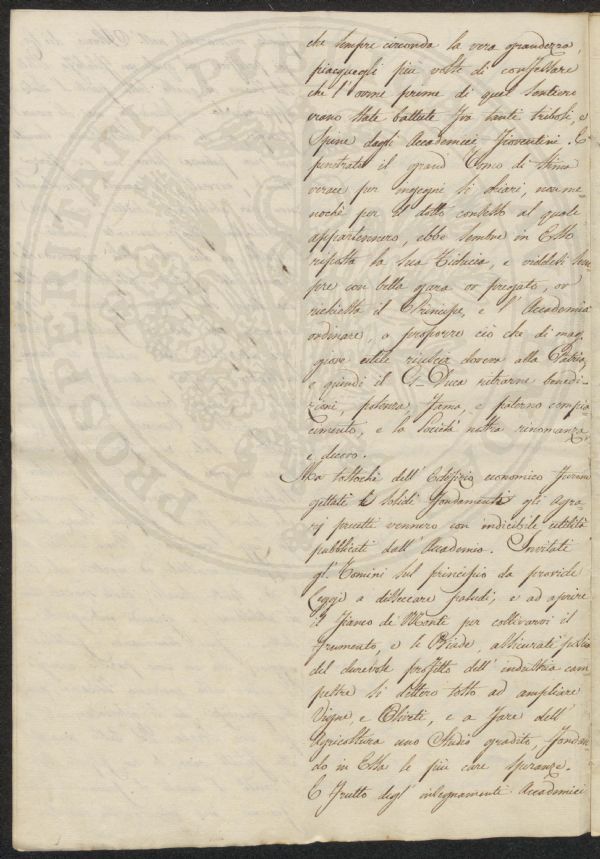 che sempre circonda la vera grandezza,
piacquegli piu volte di confessare
che l'orme prime di quel sentiero
erano state battute fra tanti triboli, e
Spine dagli Accademici Fiorentini. E
penetrato il grand' Uomo di stima
verace per ingegni sì chiari, non me
nochè per il dotto consesso al quale
appartennero, ebbe sempre in Esso
riposta la sua Fiducia, e viddesi sem
pre con bella gara or pregato, or
richiesto il Principe, e l'Accademia
ordinare, o proporre ciò che di mag
giore utile riuscir doveva alla Patria,
e quindi il G. Duca ritrarne benedi
zioni, potenza, fama, e paterno compia
cimento, e la Società nostra rinomanza,
e decoro.
Ma tostochè dell'Edifizio economico furono
gettati i solidi fondamenti gli Agra
rj precetti vennero con indicibile utilità
pubblicati dall'Accademia. Invitati
gl'Uomini sul principio da provide
Leggi a disseccare paludi, e ad aprire
il fianco de' Monti per coltivarvi il
frumento, e le Biade, assicurati
del durevole profitto dell'industria cam
pestre si dettero tosto ad ampliare
Vigne, e Oliveti, e a fare dell'
Agricoltura uno Studio gradito, fondan
do in Essa le più care speranze.
E frutto degl'insegnamenti Accademici
PROSPERITATI PVBLICAE